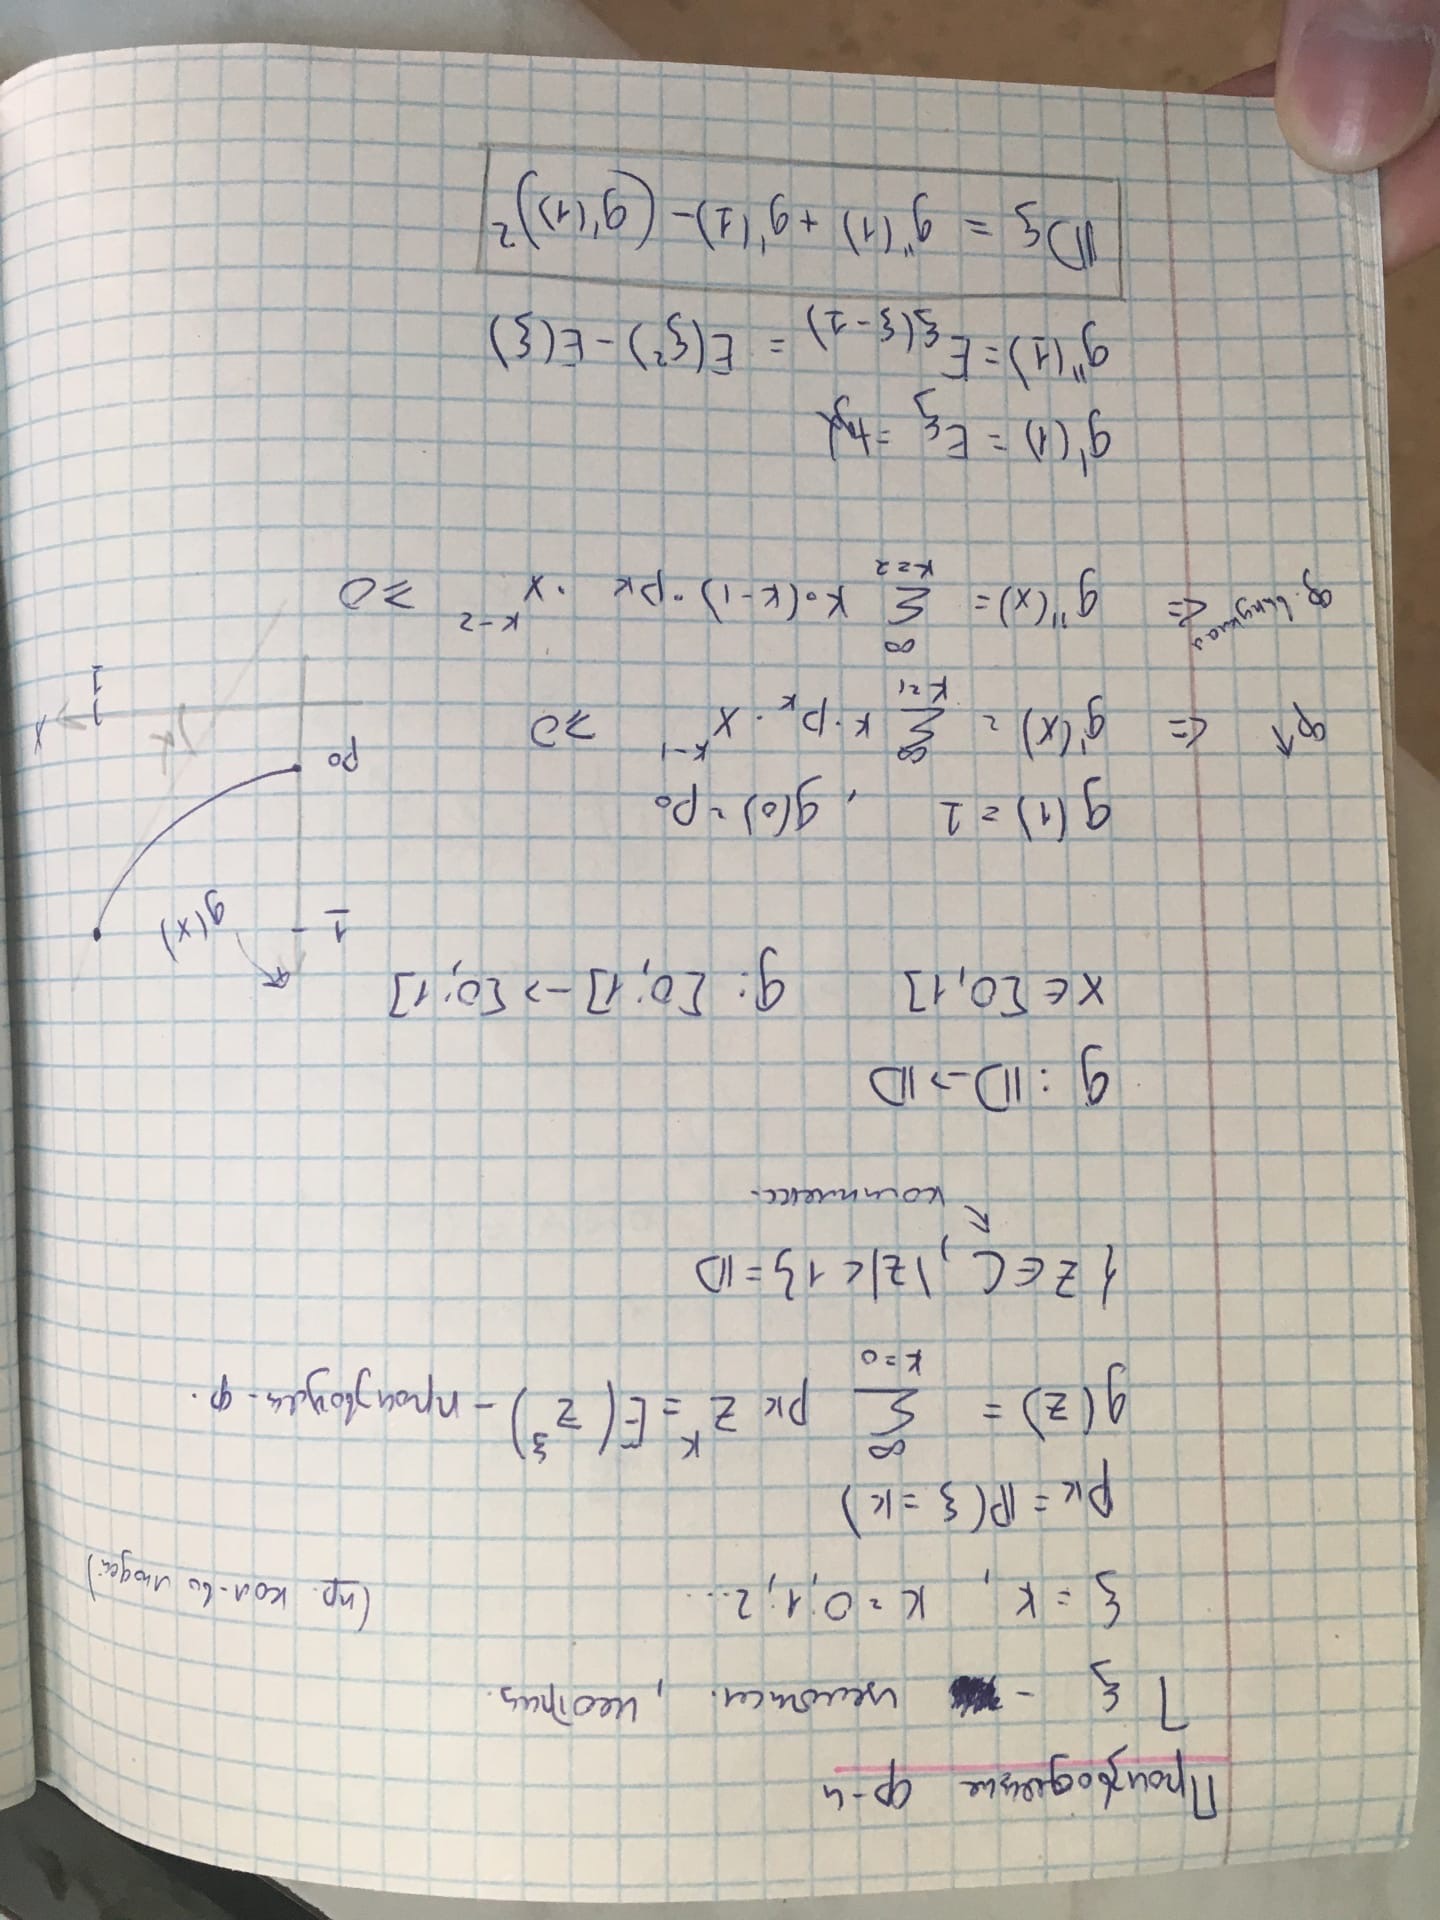 Производящие ф-и
⏋ ξ - целочисл., неотриц.
ξ = k, k = 0; 1; 2... (пр. кол-во людей)
pk = ℙ(ξ = k)
g(z) = ∞ ∑ k=0 pk z^k = E(z^ξ) – производящ. ф.
{z ∈ ℂ, |z| < 1} = 𝔻
↖ комплекс.
g : 𝔻 → 𝔻
x ∈ [0, 1] g: [0; 1] → [0; 1]
1 g(x)
g(1) = 1, g(0) = p0
p0
ф↑ <= g'(x) = ∞ ∑ k=1 k · pk · x^k-1 ≥ 0
α x
1
ф. выпуклая <= g''(x) = ∞ ∑ k=2 k · (k-1) · pk · x^k-2 ≥ 0
g'(1) = Eξ = tgα
g''(1) = Eξ(ξ-1) = E(ξ²) - E(ξ)
𝔻ξ = g''(1) + g'(1) - (g'(1))²